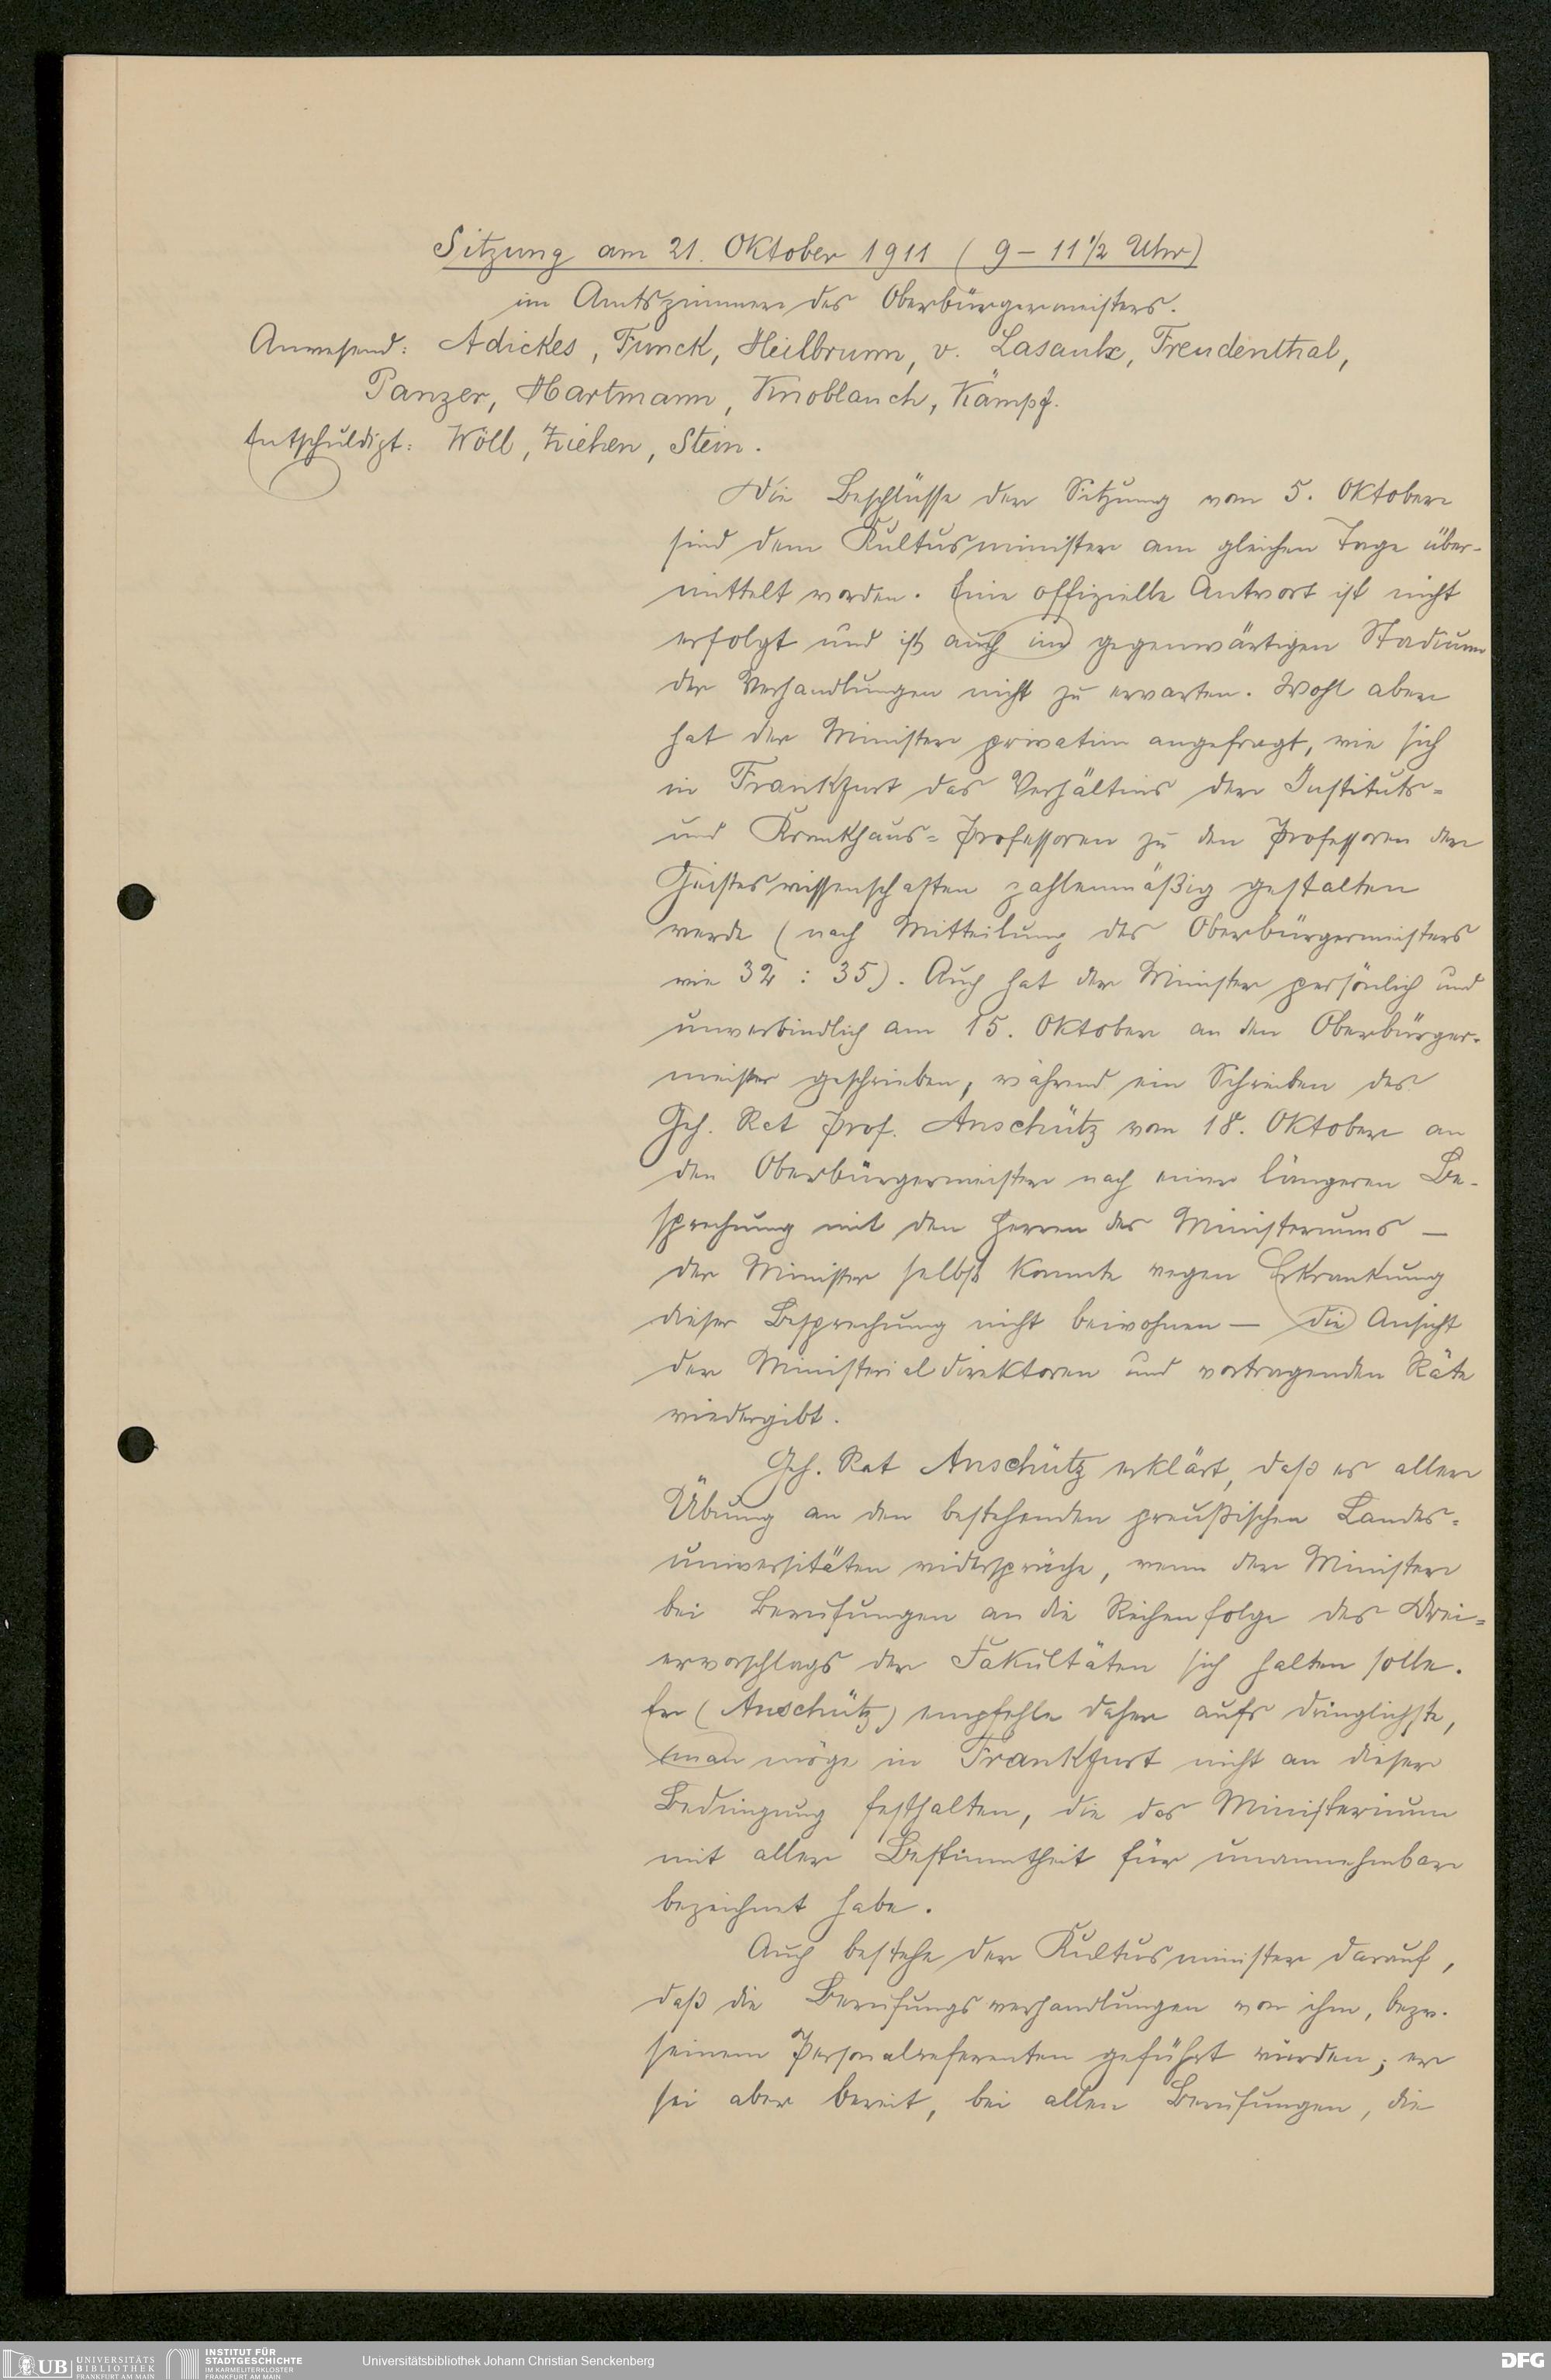 Sitzung am 21. Oktober 1911 (9 – 11 1/2 Uhr)
im Amtszimmer des Oberbürgermeisters.
Anwesend: Adickes, Funck, Heilbrunn, v. Lasaulx, Freudenthal,
Panzer, Hartmann, Knoblauch, Kämpf.
Entschuldigt: Wöll, Ziehen, Stein.
Die Beschlüsse der Sitzung vom 5. Oktober
sind dem Kultusminister am gleichen Tage über-
mittelt worden. Eine offizielle Antwort ist nicht
erfolgt und ist auch im gegenwärtigen Stadium
der Verhandlungen nicht zu erwarten. Wohl aber
hat der Minister privatim angefragt, wie sich
in Frankfurt das Verhältnis der Instituts=
und Krankhaus=Professoren zu den Professoren der
Geisteswissenschaften zahlenmäßig gestalten
werde (nach Mitteilung des Oberbürgermeisters
wie 32 : 35). Auch hat der Minister persönlich und
unverbindlich am 15. Oktober an den Oberbürger-
meister geschrieben, während ein Schreiben des
Geh. Rat Prof. Anschütz vom 18. Oktober an
den Oberbürgermeister nach einer längeren Be-
sprechung mit den Herren des Ministeriums –
der Minister selbst konnte wegen Erkrankung
dieser Besprechung nicht beiwohnen – die Ansicht
der Ministerialdirektoren und vortragenden Räte
wiedergibt.
Geh. Rat Anschütz erklärt, daß es aller
Übung an den bestehenden preußischen Landes=
universitäten widerspräche, wenn der Minister
bei Berufungen an die Reihenfolge des Drei=
ervorschlags der Fakultäten sich halten solle.
Er (Anschütz) empfehle daher aufs dringlichste,
man möge in Frankfurt nicht an dieser
Bedingung festhalten, die das Ministerium
mit aller Bestimmtheit für unannehmbar
bezeichnet habe.
Auch bestehe der Kultusminister darauf,
daß die Berufungsverhandlungen von ihm, bezw.
seinem Personalreferenten geführt würden; er
sei aber bereit, bei allen Berufungen, die
UB UNIVERSITÄTS BIBLIOTHEK FRANKFURT AM MAIN
INSTITUT FÜR STADTGESCHICHTE IM KARMELITERKLOSTER FRANKFURT AM MAIN
Universitätsbibliothek Johann Christian Senckenberg
DFG